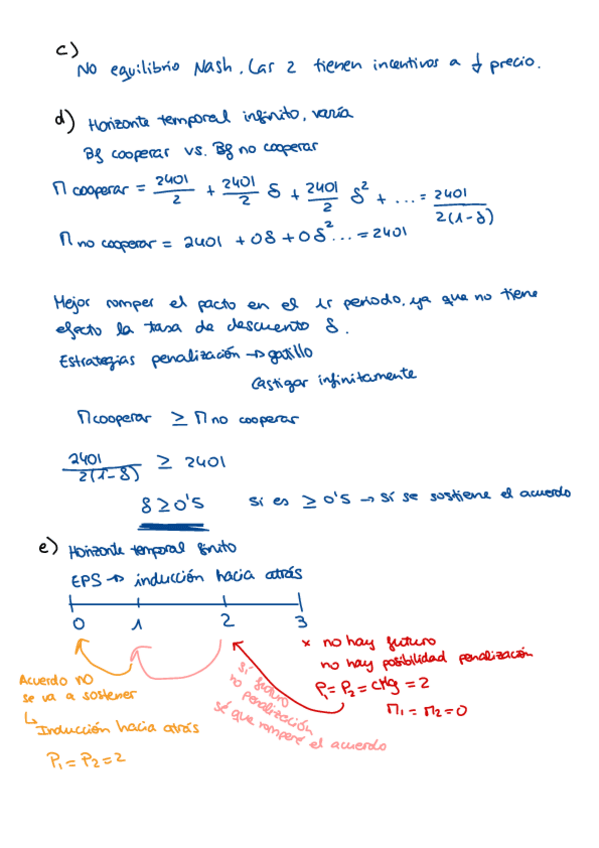 c)
No equilibrio Nash. Las 2 tienen incentivos a ↓ precio.
d) Horizonte temporal infinito, varía
Bº cooperar vs. Bº no cooperar
Π cooperar = 2401/2 + 2401/2 δ + 2401/2 δ² + ... = 2401/2(1-δ)
Π no cooperar = 2401 + 0δ + 0δ² ... = 2401
Mejor romper el pacto en el 1r periodo, ya que no tiene
efecto la tasa de descuento δ.
Estrategias penalización → gatillo
Castigar infinitamente
Π cooperar ≥ Π no cooperar
2401/2(1-δ) ≥ 2401
δ ≥ 0'5 si es ≥ 0'5 → sí se sostiene el acuerdo
e) Horizonte temporal finito
EPS → inducción hacia atrás
0 1 2 3
x no hay futuro
no hay posibilidad penalización
P₁ = P₂ = CMg = 2
Π₁ = Π₂ = 0
sí futuro
no penalización
sé que romperé el acuerdo
Acuerdo NO
se va a sostener
↳ Inducción hacia atrás
P₁ = P₂ = 2